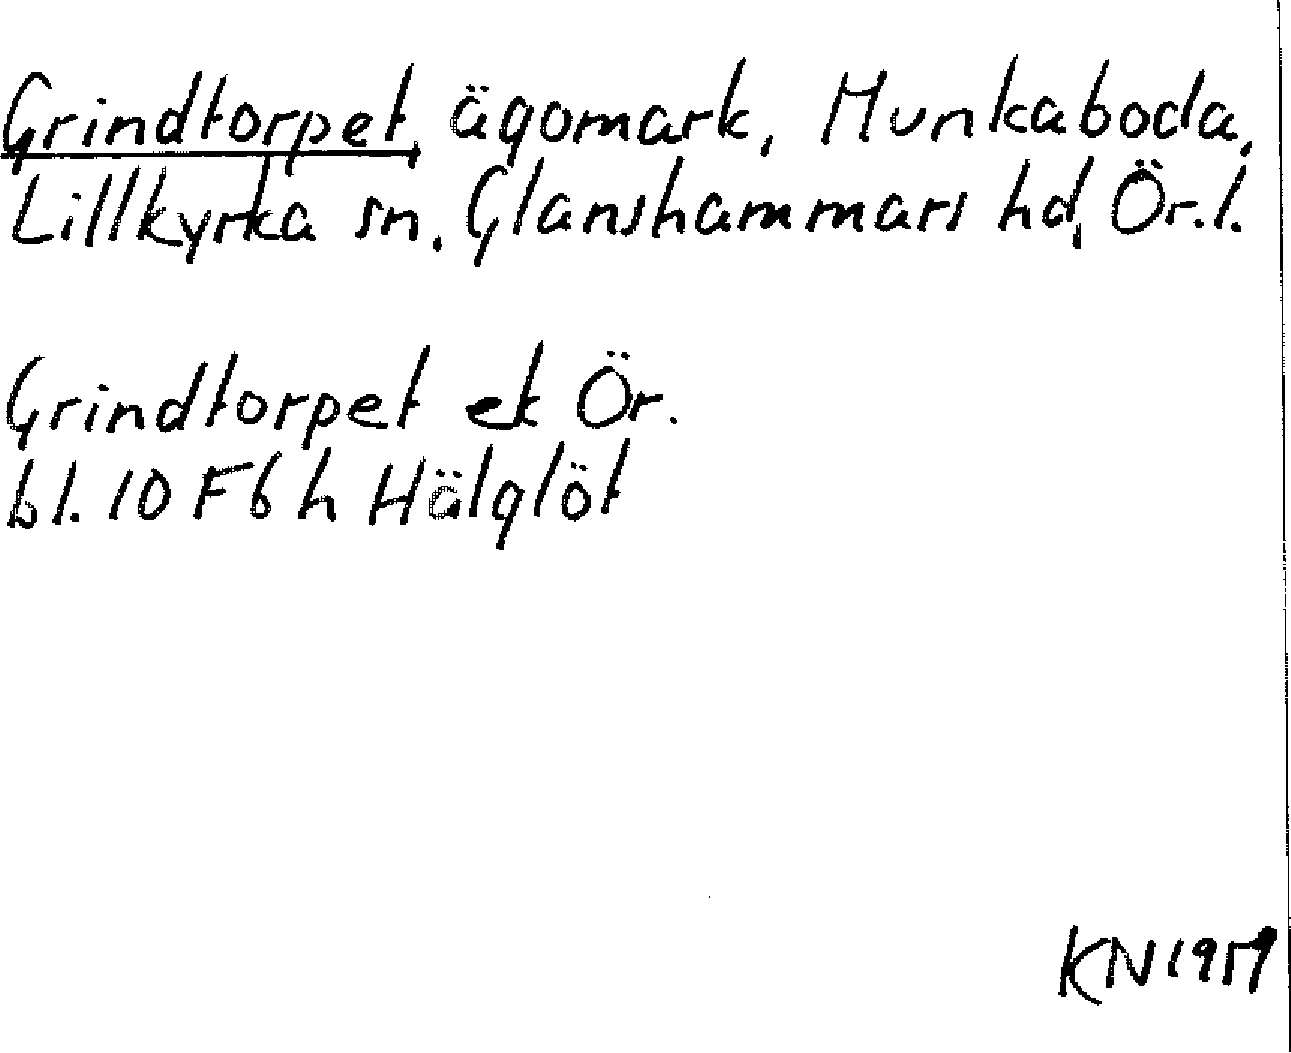 Grindtorpet, ägomark, Munkaboda,
Lillkyrka sn. Glanshammars hd, Ör.l.
Grindtorpet ek Ör.
bl. 10 F 6 h Hälglöt
KN